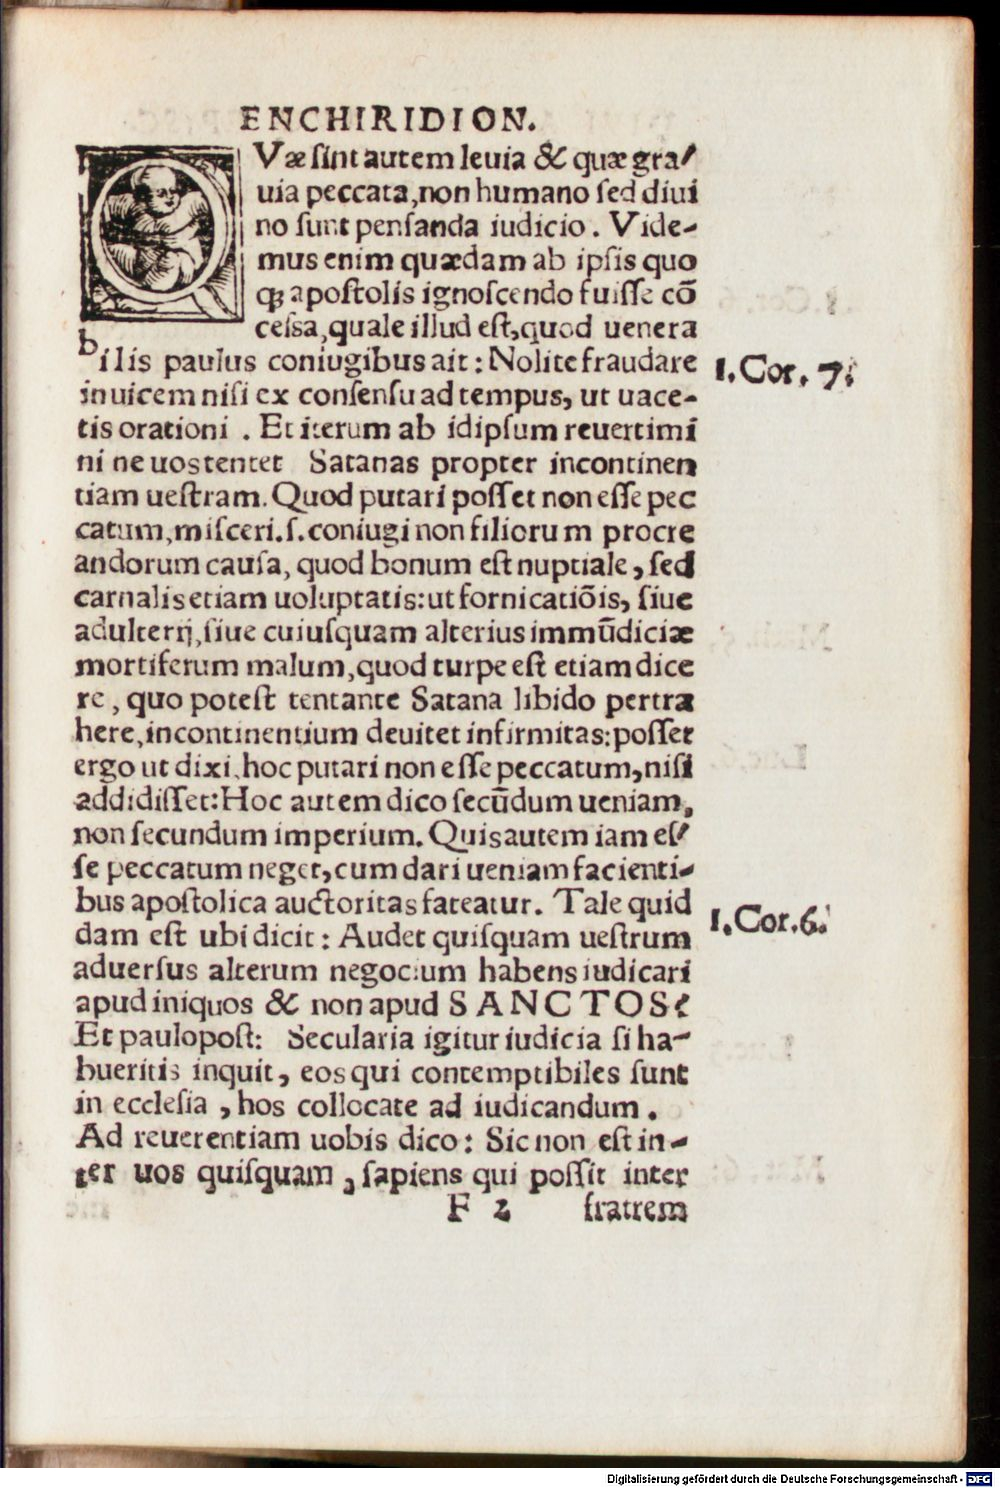 ENCHIRIDION.
QVæ ſint autem leuia & quæ gra/
uia peccata, non humano ſed diui
no ſunt penſanda iudicio. Vide-
mus enim quædam ab ipſis quo
qꝫ apoſtolis ignoſcendo fuiſſe cō
ceſſa, quale illud eſt, quod uenera
bilis paulus coniugibus ait: Nolite fraudare
inuicem niſi ex conſenſu ad tempus, ut uace-
tis orationi. Et iterum ab idipſum reuertimi
ni ne uos tentet Satanas propter incontinen
tiam ueſtram. Quod putari poſſet non eſſe pec
catum, miſceri. ſ. coniugi non filiorum procre
andorum cauſa, quod bonum eſt nuptiale, ſed
carnalis etiam uoluptatis: ut fornicatiōis, ſiue
adulterij, ſiue cuiuſquam alterius immūdiciæ
mortiferum malum, quod turpe eſt etiam dice
re, quo poteſt tentante Satana libido pertra
here, incontinentium deuitet infirmitas: poſſet
ergo ut dixi, hoc putari non eſſe peccatum, niſi
addidiſſet: Hoc autem dico ſecūdum ueniam,
non ſecundum imperium. Quis autem iam eſ/
ſe peccatum neget, cum dari ueniam facienti-
bus apoſtolica auctoritas fateatur. Tale quid
dam eſt ubi dicit: Audet quiſquam ueſtrum
aduerſus alterum negocium habens iudicari
apud iniquos & non apud SANCTOS?
Et paulopoſt: Secularia igitur iudicia ſi ha-
bueritis inquit, eos qui contemptibiles ſunt
in eccleſia, hos collocate ad iudicandum.
Ad reuerentiam uobis dico: Sic non eſt in-
ter uos quiſquam, ſapiens qui poſſit inter
F 2 fratrem
1. Cor. 7.
1. Cor. 6.
Digitalisierung gefördert durch die Deutsche Forschungsgemeinschaft - DFG